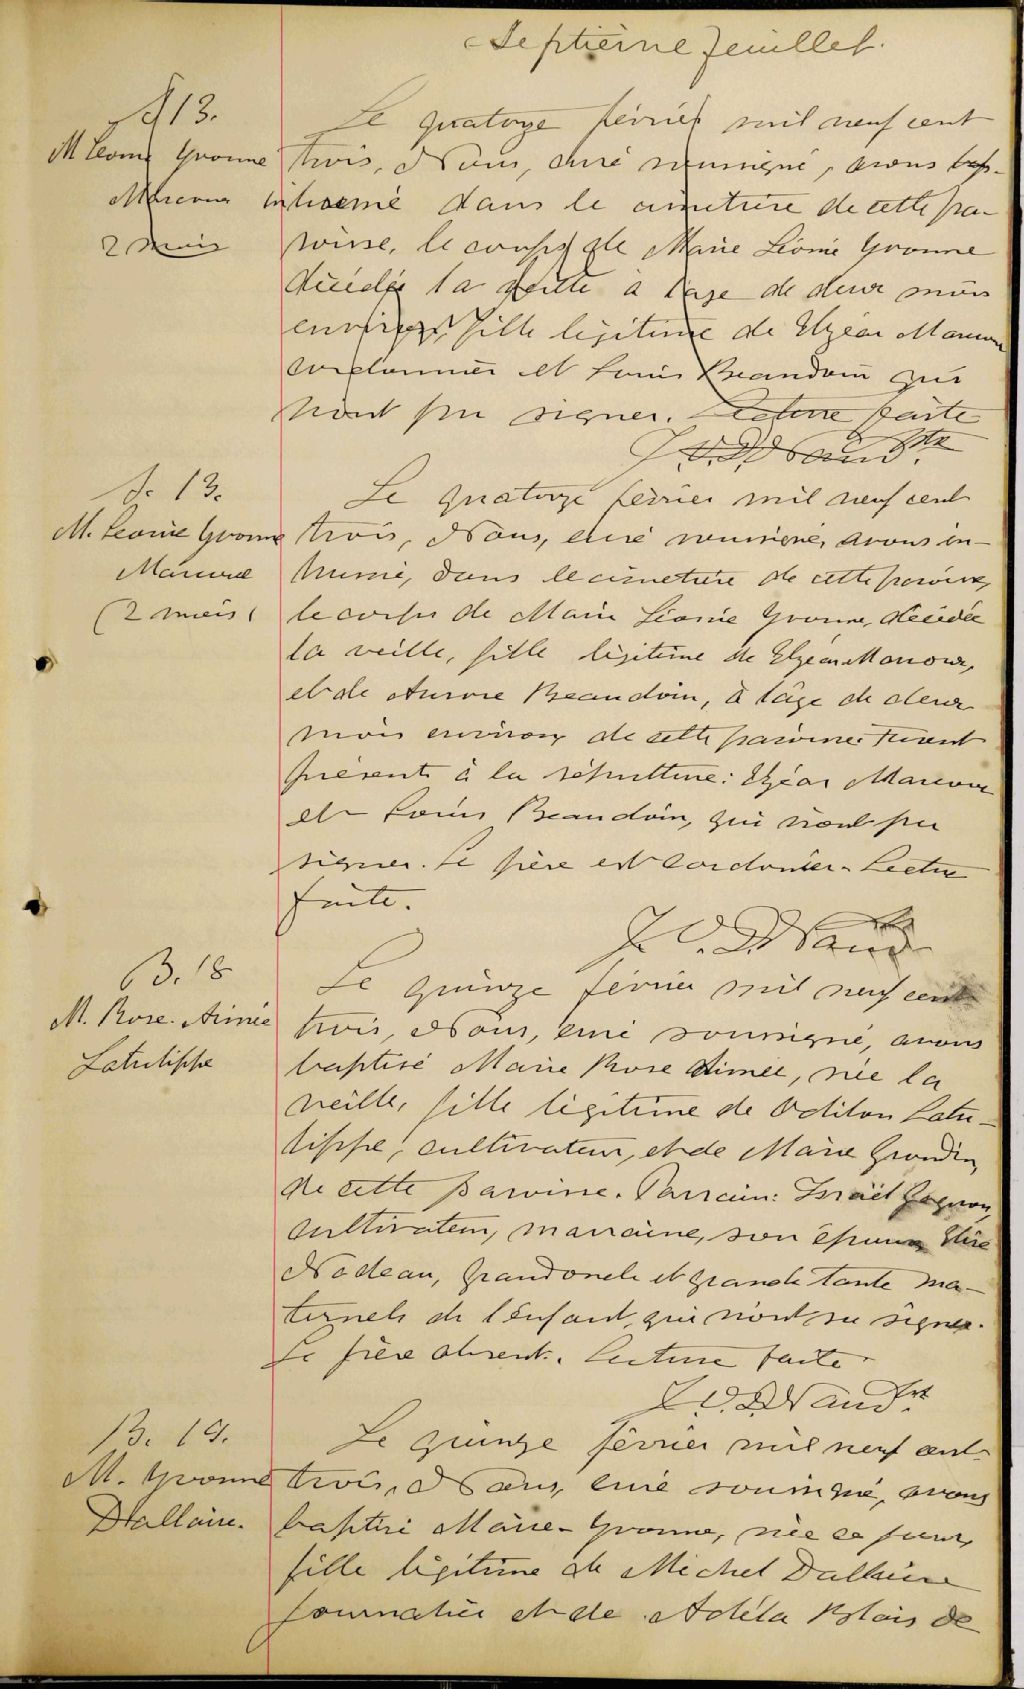 Septième feuillet.
S 13.
M Leonie Yvonne
Marcoux
2 mois
Le quatorze février mil neuf cent
trois, Nous, curé soussigné, avons bap-
inhumé dans le cimetière de cette pa-
roisse, le corps de Marie Léonie Yvonne
décédée la veille à l'age de deux mois
environ, fille légitime de Elzéar Marcoux
cordonnier et Louis Beaudoin qui
n'ont pu signer. Lecture faite
S. 13.
M. Leonie Yvonne
Marcoux
(2 mois)
Le quatorze février mil neuf cent
trois, Nous, curé soussigné, avons in-
humé, dans le cimetière de cette paroisse,
le corps de Marie Léonie Yvonne, décédée
la veille, fille légitime de Elzéar Marcoux,
et de Aurore Beaudoin, à l'âge de deux
mois environ, de cette paroisse. Furent
présents à la sépulture: Elzéar Marcoux
et Louis Beaudoin, qui n'ont pu
signer. Le père est cordonier. Lecture
faite.
B. 18
M. Rose-Aimée
Latulippe
Le quinze février mil neuf cent
trois, Nous, curé soussigné, avons
baptisé Marie Rose Aimée, née la
veille, fille légitime de Odilon Latu-
lippe, cultivateur, et de Marie Grondin,
de cette paroisse. Parrain: Israël Gagnon,
cultivateur, marraine, son épouse Elise
Nadeau, grand oncle et grande tante ma-
ternels de l'enfant, qui n'ont su signer.
Le père absent. Lecture faite.
B. 19.
M. Yvonne
Dallaire.
Le quinze février mil neuf cent
trois, Nous, curé soussigné, avons
baptisé Marie-Yvonne, née ce jour,
fille légitime de Michel Dallaire
journalier et de Adéla Blais de